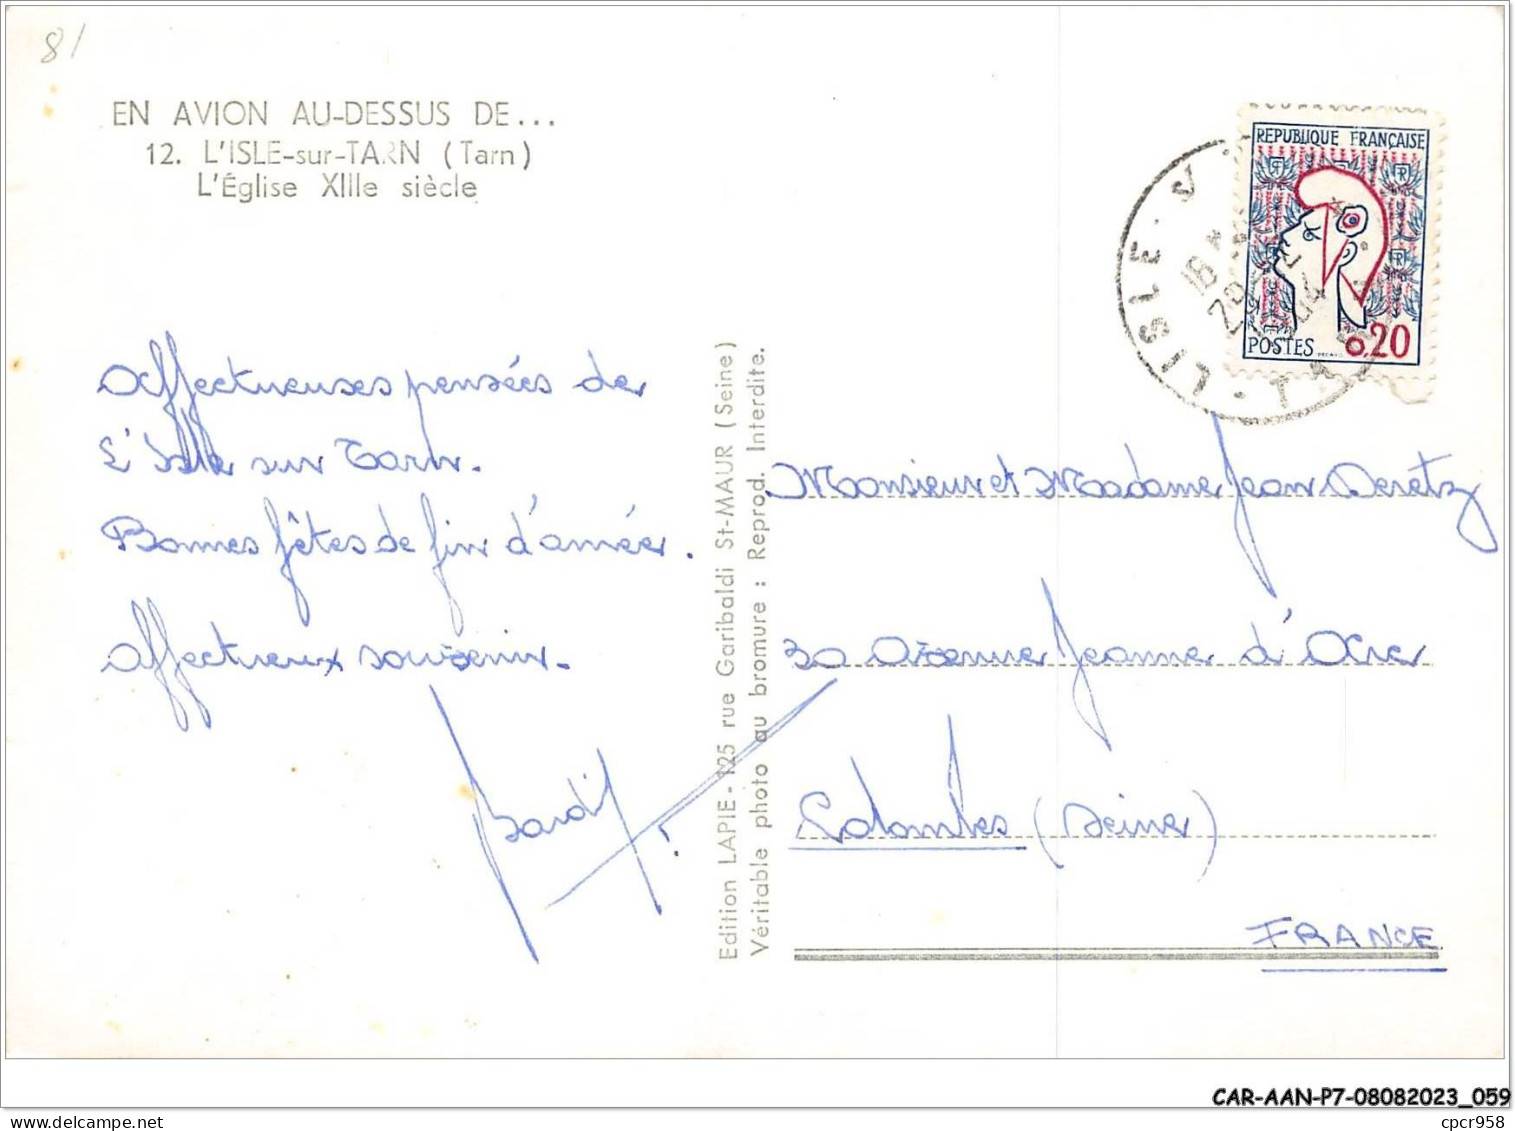 81
EN AVION AU-DESSUS DE...
12. L'ISLE-sur-TARN (Tarn)
L'Église XIIIe siècle
REPUBLIQUE FRANÇAISE
POSTES 0,20
LISLE-S
TARN
18
Affectueuses pensées de
L'Isle sur Tarn.
Bonnes fêtes de fin d'année.
Affectueux souvenir.
Edition LAPIE - 125 rue Garibaldi St-MAUR (Seine)
Véritable photo au bromure : Reprod. Interdite.
Monsieur et Madame Jean Deretz
30 Avenue Jeanne d'Arc
Colombes (Seine)
FRANCE
CAR-AAN-P7-08082023_059
www.delcampe.net
cpcr958